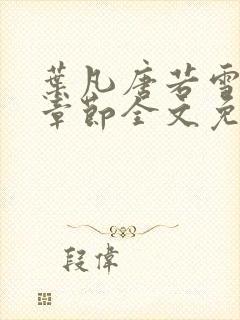 葉凡唐若雪
章節全文免
段偉